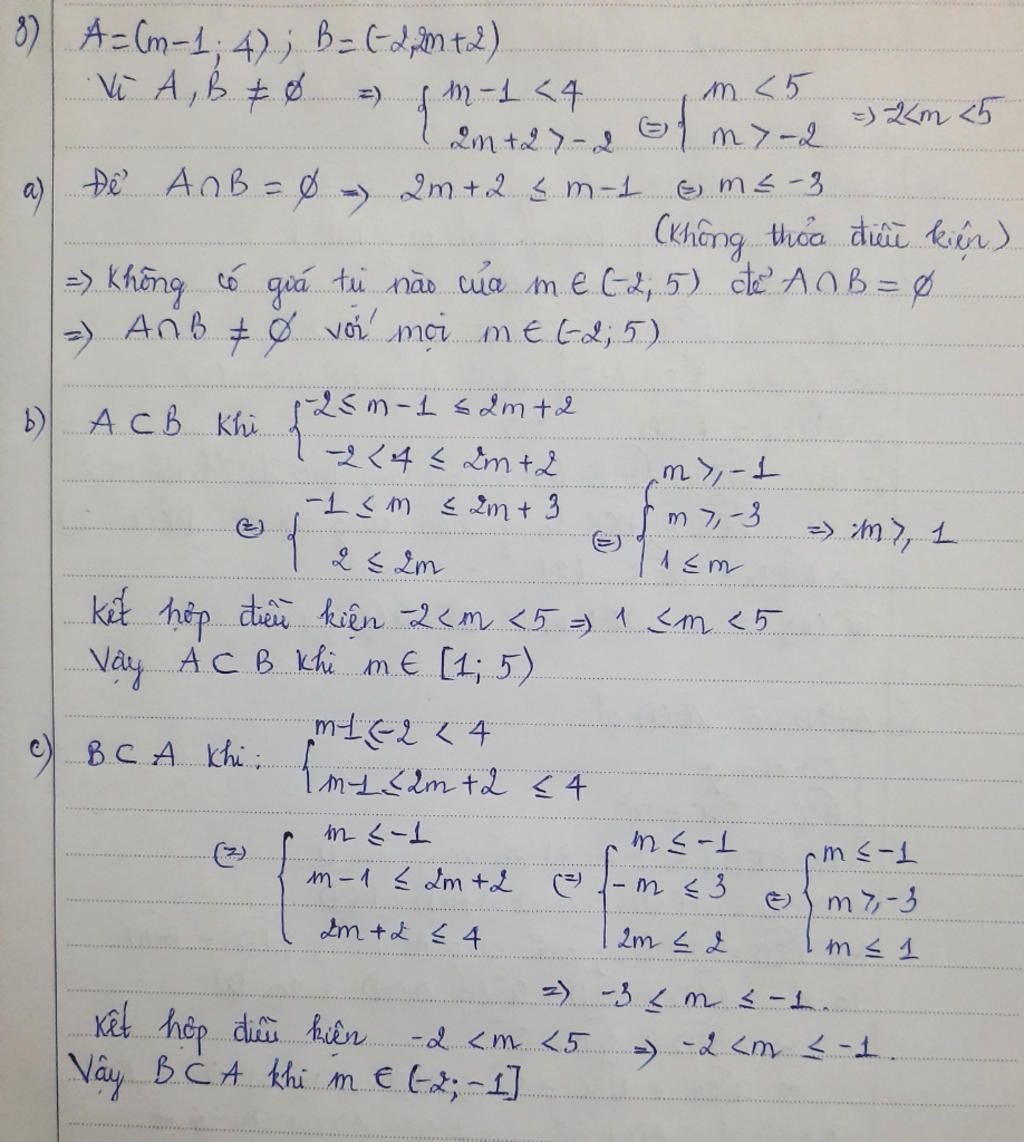 8) A = (m-1; 4); B = (-2; 2m+2)
Vì A, B ≠ ∅ => { m-1 < 4 ; 2m+2 > -2 (=) { m < 5 ; m > -2 => -2 < m < 5
a) Để A∩B = ∅ => 2m+2 ≤ m-1 (=) m ≤ -3
(Không thỏa điều kiện)
=> Không có giá trị nào của m ∈ (-2; 5) để A∩B = ∅
=> A∩B ≠ ∅ với mọi m ∈ (-2; 5)
b) A ⊂ B khi { -2 ≤ m-1 ≤ 2m+2 ; -2 < 4 ≤ 2m+2
(=) { -1 ≤ m ≤ 2m+3 ; 2 ≤ 2m (=) { m ≥ -1 ; m ≥ -3 ; 1 ≤ m => m ≥ 1
Kết hợp điều kiện -2 < m < 5 => 1 ≤ m < 5
Vậy A ⊂ B khi m ∈ [1; 5)
c) B ⊂ A khi: { m-1 ≤ -2 < 4 ; m-1 ≤ 2m+2 ≤ 4
(=) { m ≤ -1 ; m-1 ≤ 2m+2 ; 2m+2 ≤ 4 (=) { m ≤ -1 ; -m ≤ 3 ; 2m ≤ 2 (=) { m ≤ -1 ; m ≥ -3 ; m ≤ 1
=> -3 ≤ m ≤ -1.
Kết hợp điều kiện -2 < m < 5 => -2 < m ≤ -1.
Vậy B ⊂ A khi m ∈ (-2; -1]